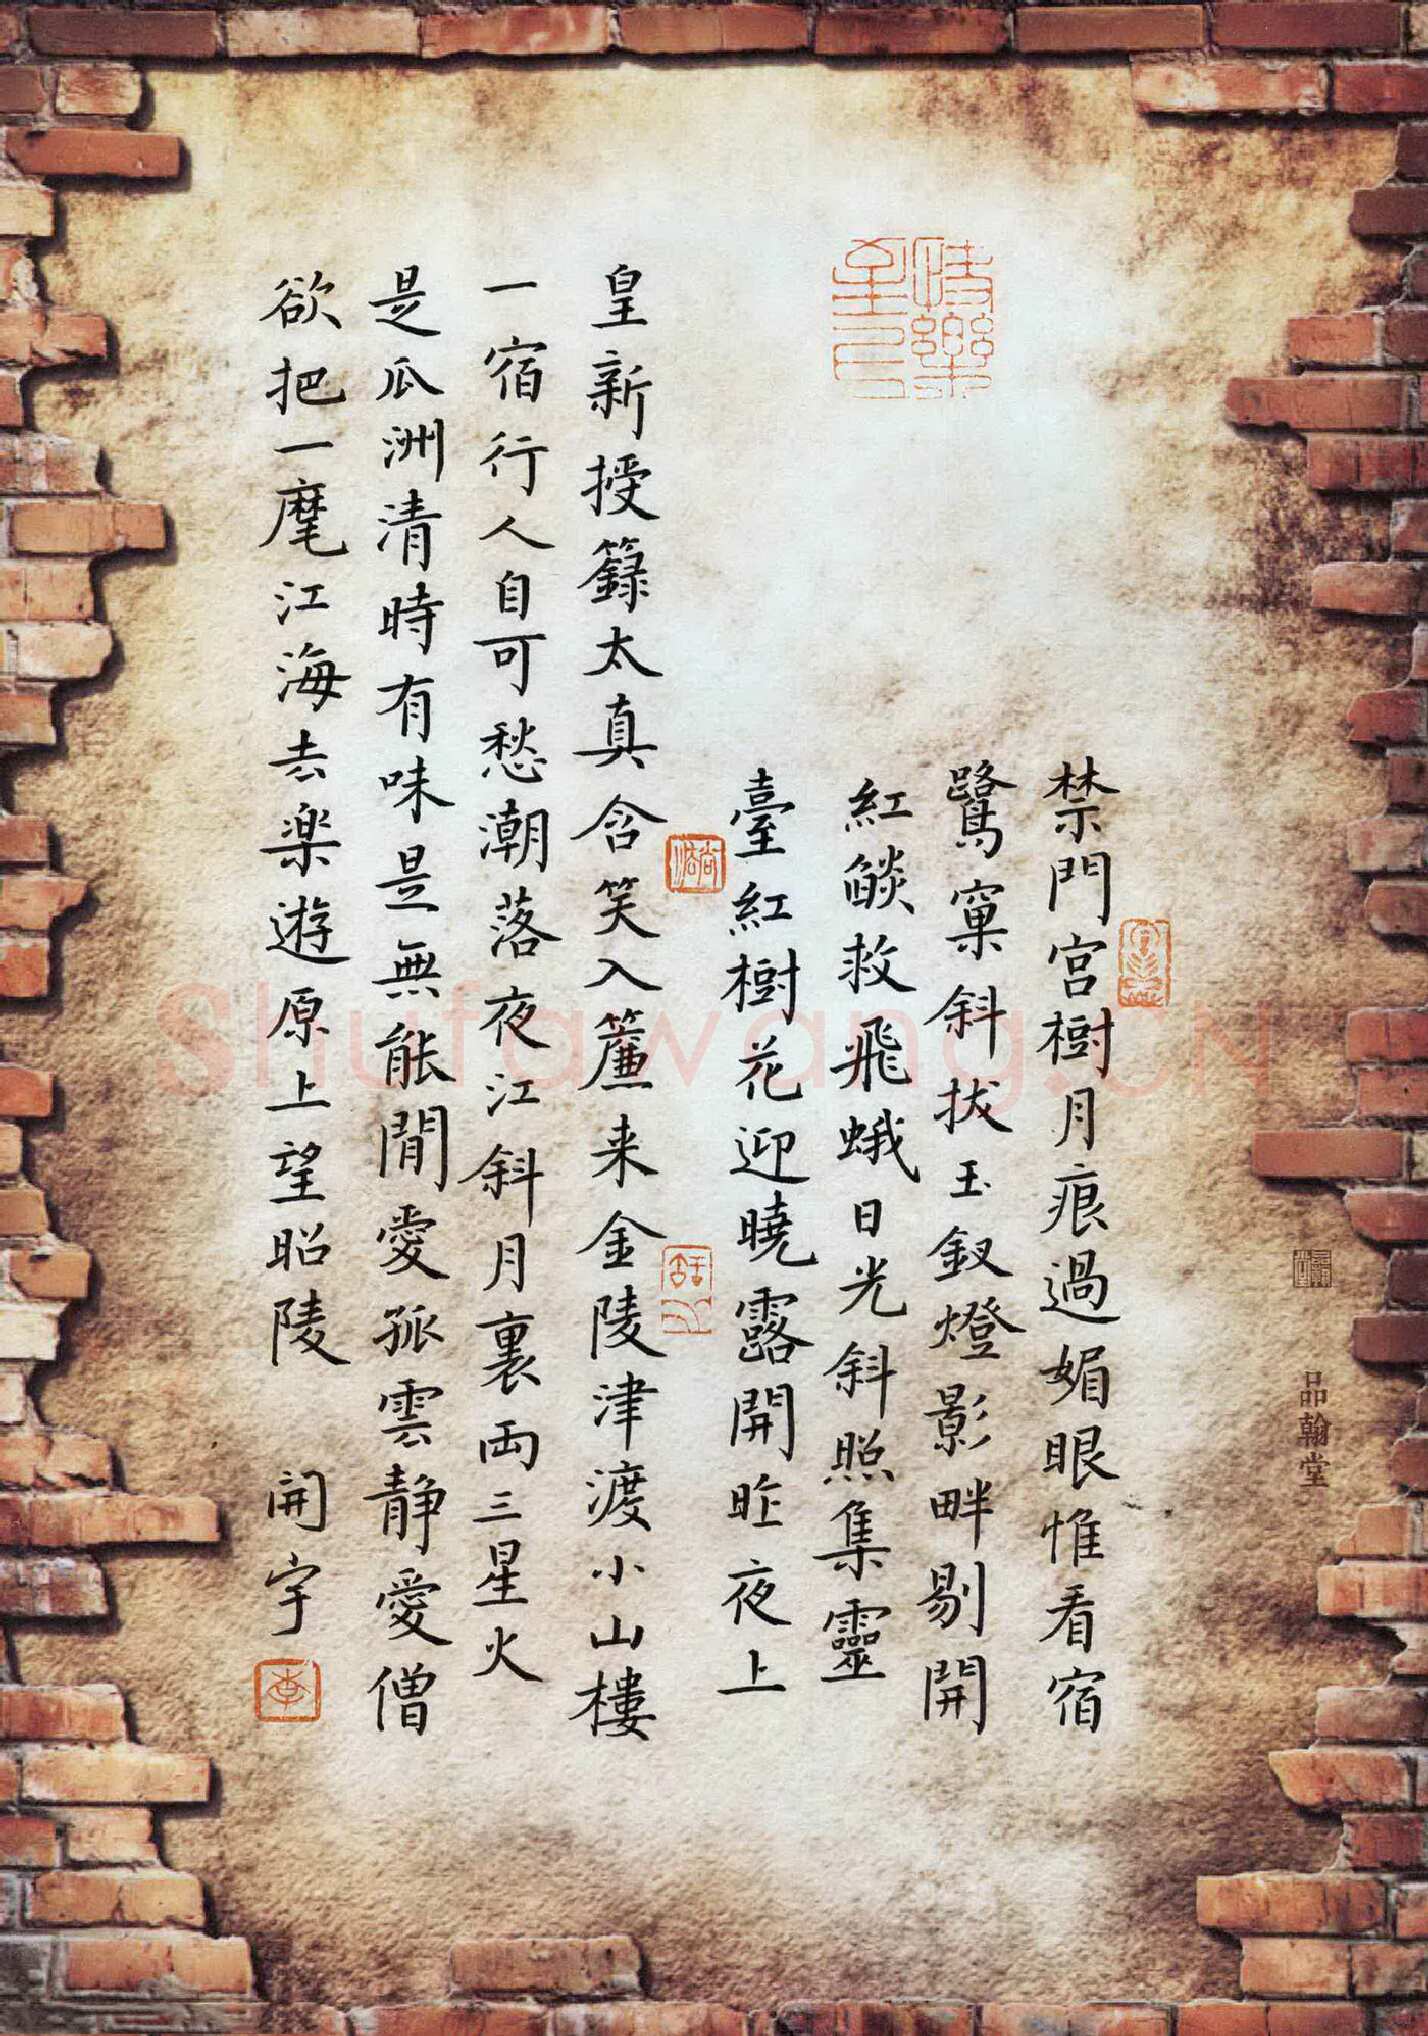 品翰堂
禁門宮樹月痕過媚眼惟看宿
鷺窠斜拔玉釵燈影畔剔開
紅燄救飛蛾日光斜照集靈
臺紅樹花迎曉露開昨夜上
皇新授籙太真含笑入簾来金陵津渡小山樓
一宿行人自可愁潮落夜江斜月裏両三星火
是瓜洲清時有味是無能閒愛孤雲靜愛僧
欲把一麾江海去楽遊原上望昭陵 開宇
李
Shufawang.CN